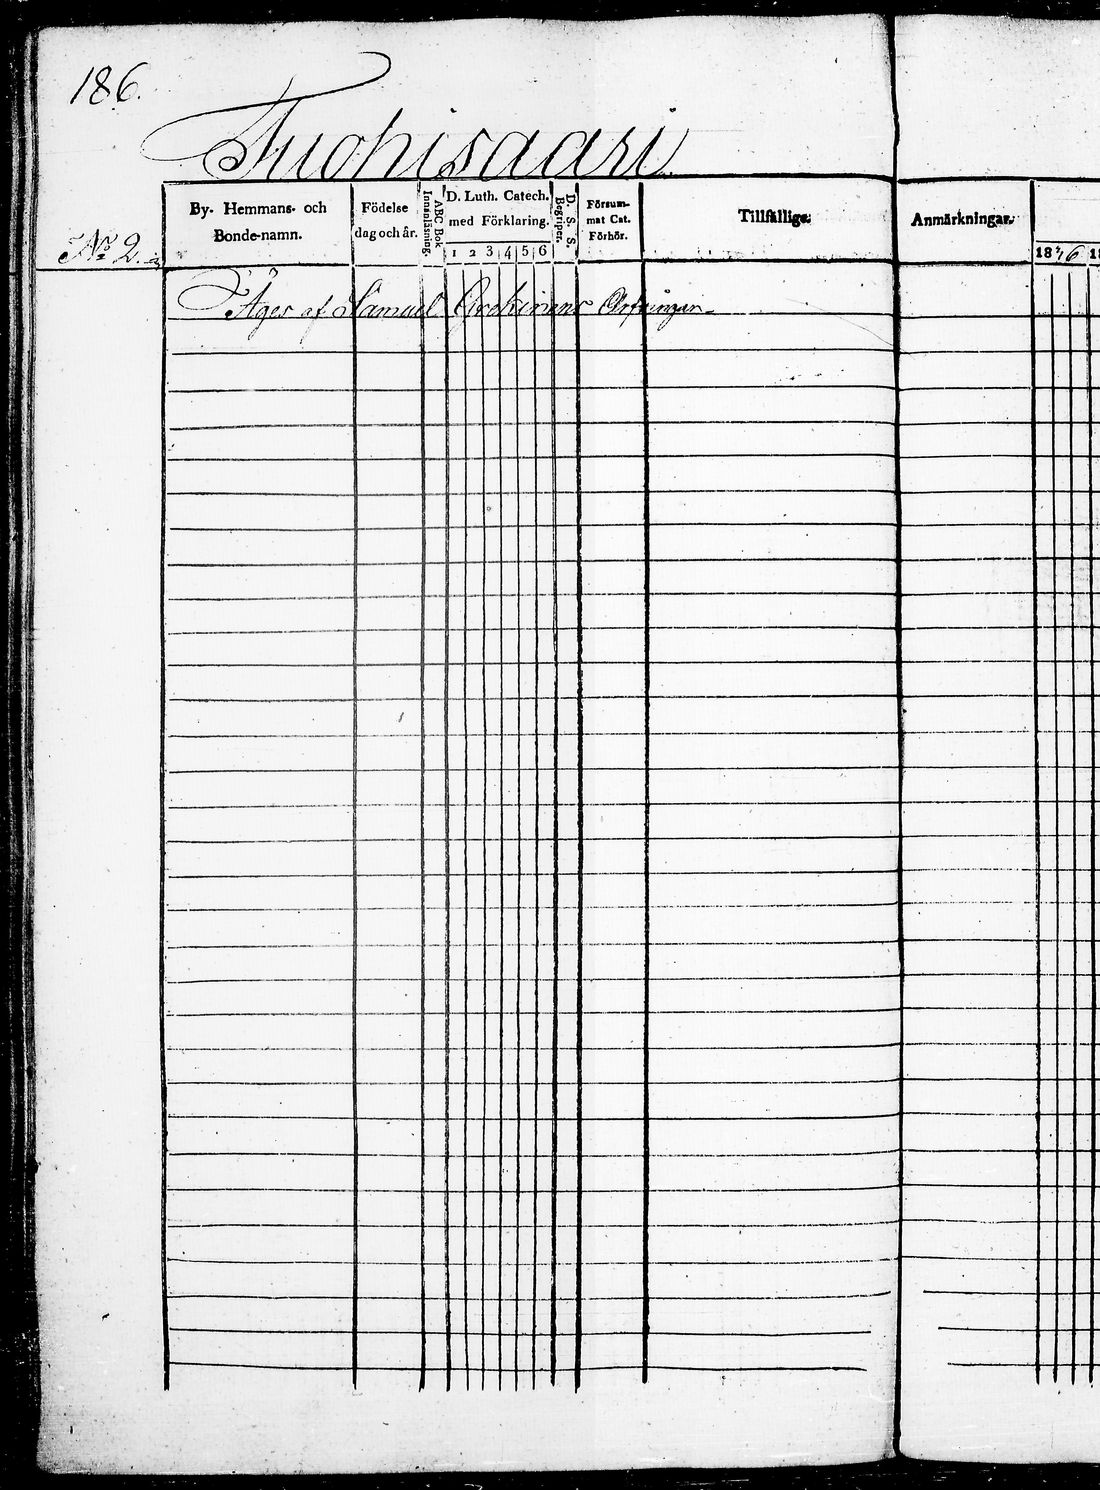 186.
Tuohisaari
By- Hemmans- och Bonde-namn.
Födelse dag och år.
ABC Bok Innanläsning.
D. Luth. Catech. med Förklaring.
1 2 3 4 5 6
D. S. S. Begriper.
Försummat Cat. Förhör.
Tillfällige.
Anmärkningar.
18
No 2.
Äges af Samuel Arfvingar